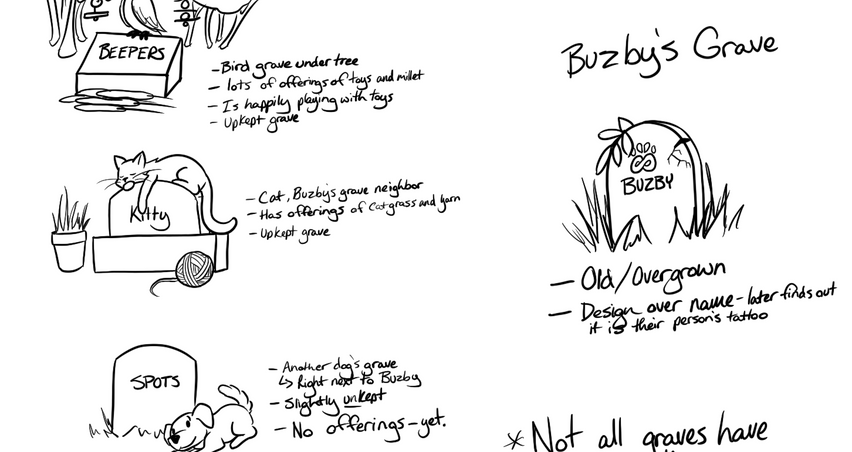 BEEPERS
- Bird grave under tree
- lots of offerings of toys and millet
- Is happily playing with toys
- Upkept grave
Kitty
- Cat, Buzby's grave neighbor
- Has offerings of Catgrass and yarn
- Upkept grave
SPOTS
- Another dog's grave
↳ Right next to Buzby
- Slightly unkept
- No offerings - yet.
Buzby's Grave
BUZBY
- Old/Overgrown
- Design over name - later finds out
it is their person's tattoo
* Not all graves have